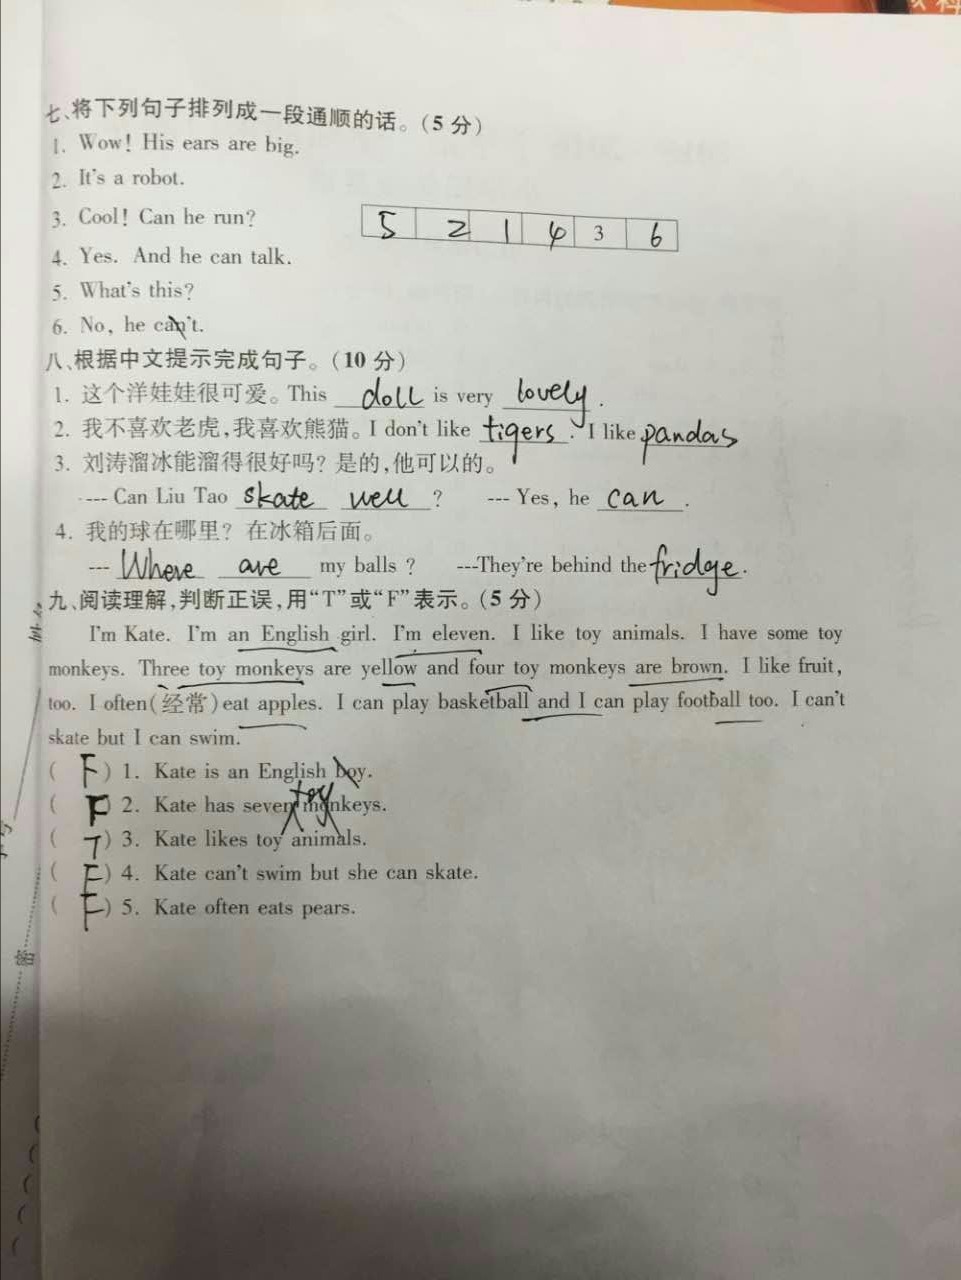 七、将下列句子排列成一段通顺的话。(5 分)
1. Wow! His ears are big.
2. It's a robot.
3. Cool! Can he run?
5 2 1 4 3 6
4. Yes. And he can talk.
5. What's this?
6. No, he can't.
八、根据中文提示完成句子。(10 分)
1. 这个洋娃娃很可爱。This doll is very lovely.
2. 我不喜欢老虎,我喜欢熊猫。I don't like tigers. I like pandas
3. 刘涛溜冰能溜得很好吗? 是的,他可以的。
--- Can Liu Tao skate well ? --- Yes, he can.
4. 我的球在哪里? 在冰箱后面。
--- Where are my balls ? ---They're behind the fridge.
九、阅读理解,判断正误,用“T”或“F”表示。(5 分)
I'm Kate. I'm an English girl. I'm eleven. I like toy animals. I have some toy
monkeys. Three toy monkeys are yellow and four toy monkeys are brown. I like fruit,
too. I often(经常)eat apples. I can play basketball and I can play football too. I can't
skate but I can swim.
( F ) 1. Kate is an English boy.
toy
( F 2. Kate has seven monkeys.
( T ) 3. Kate likes toy animals.
( F ) 4. Kate can't swim but she can skate.
( F ) 5. Kate often eats pears.
密